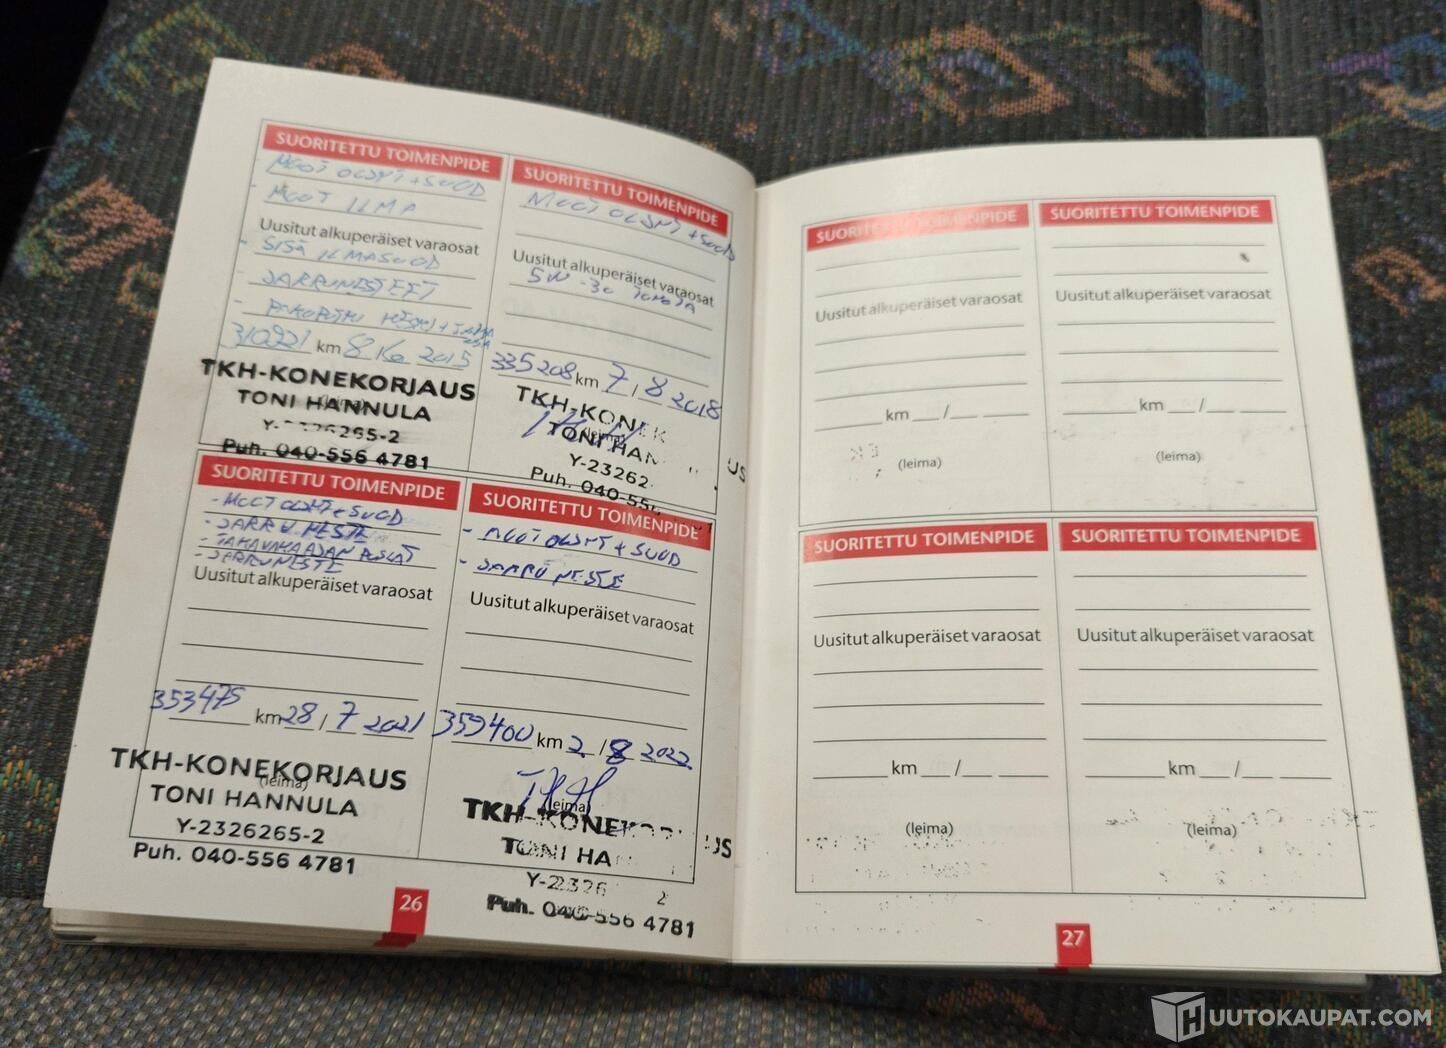 SUORITETTU TOIMENPIDE
- MOOT ÖLJYT + SUOD
- MOOT ILMA
Uusitut alkuperäiset varaosat
- SISÄ ILMASUOD
- JARRUNESTEET
310921 km 8/6 2015
TKH-KONEKORJAUS
(leima)
TONI HANNULA
Y-2326265-2
Puh. 040-556 4781
SUORITETTU TOIMENPIDE
MOOT ÖLJYT + SUOD
Uusitut alkuperäiset varaosat
5W-30
335208 km 7/8 2018
TKH-KONEK US
(leima)
TONI HAN
Y-23262
Puh. 040-556
SUORITETTU TOIMENPIDE
- MOOT ÖLJYT + SUOD
- JARRU NESTE
- TAKAVAKAAJAN PUSLAT
- JARRUNESTE
Uusitut alkuperäiset varaosat
353475 km 28/7 2021
TKH-KONEKORJAUS
(leima)
TONI HANNULA
Y-2326265-2
Puh. 040-556 4781
SUORITETTU TOIMENPIDE
- MOOT ÖLJYT + SUOD
- JARRU NESTE
Uusitut alkuperäiset varaosat
359400 km 2/8 2022
(leima)
TKH-KONEKO US
TONI HA
Y-2326 2
Puh. 040-556 4781
26
SUORITETTU TOIMENPIDE
Uusitut alkuperäiset varaosat
km /
(leima)
SUORITETTU TOIMENPIDE
Uusitut alkuperäiset varaosat
km /
(leima)
SUORITETTU TOIMENPIDE
Uusitut alkuperäiset varaosat
km /
(leima)
SUORITETTU TOIMENPIDE
Uusitut alkuperäiset varaosat
km /
(leima)
27
HUUTOKAUPAT.COM